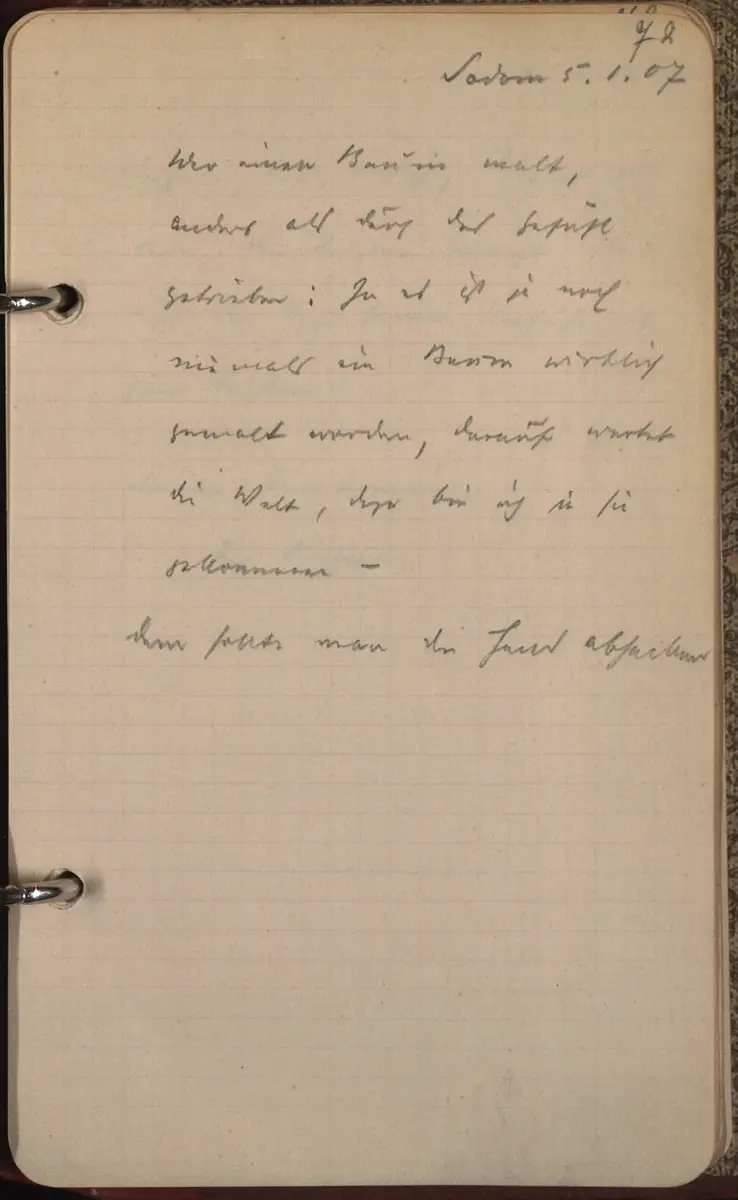 78
Sodom 5.1.07
Wer einen Baum malt,
anders als durch das Gefühl
getrieben: Ja es ist ja noch
niemals ein Baum wirklich
gemalt worden, darauf wartet
die Welt, dazu bin ich in sie
gekommen –
dem sollte man die Hand abhacken